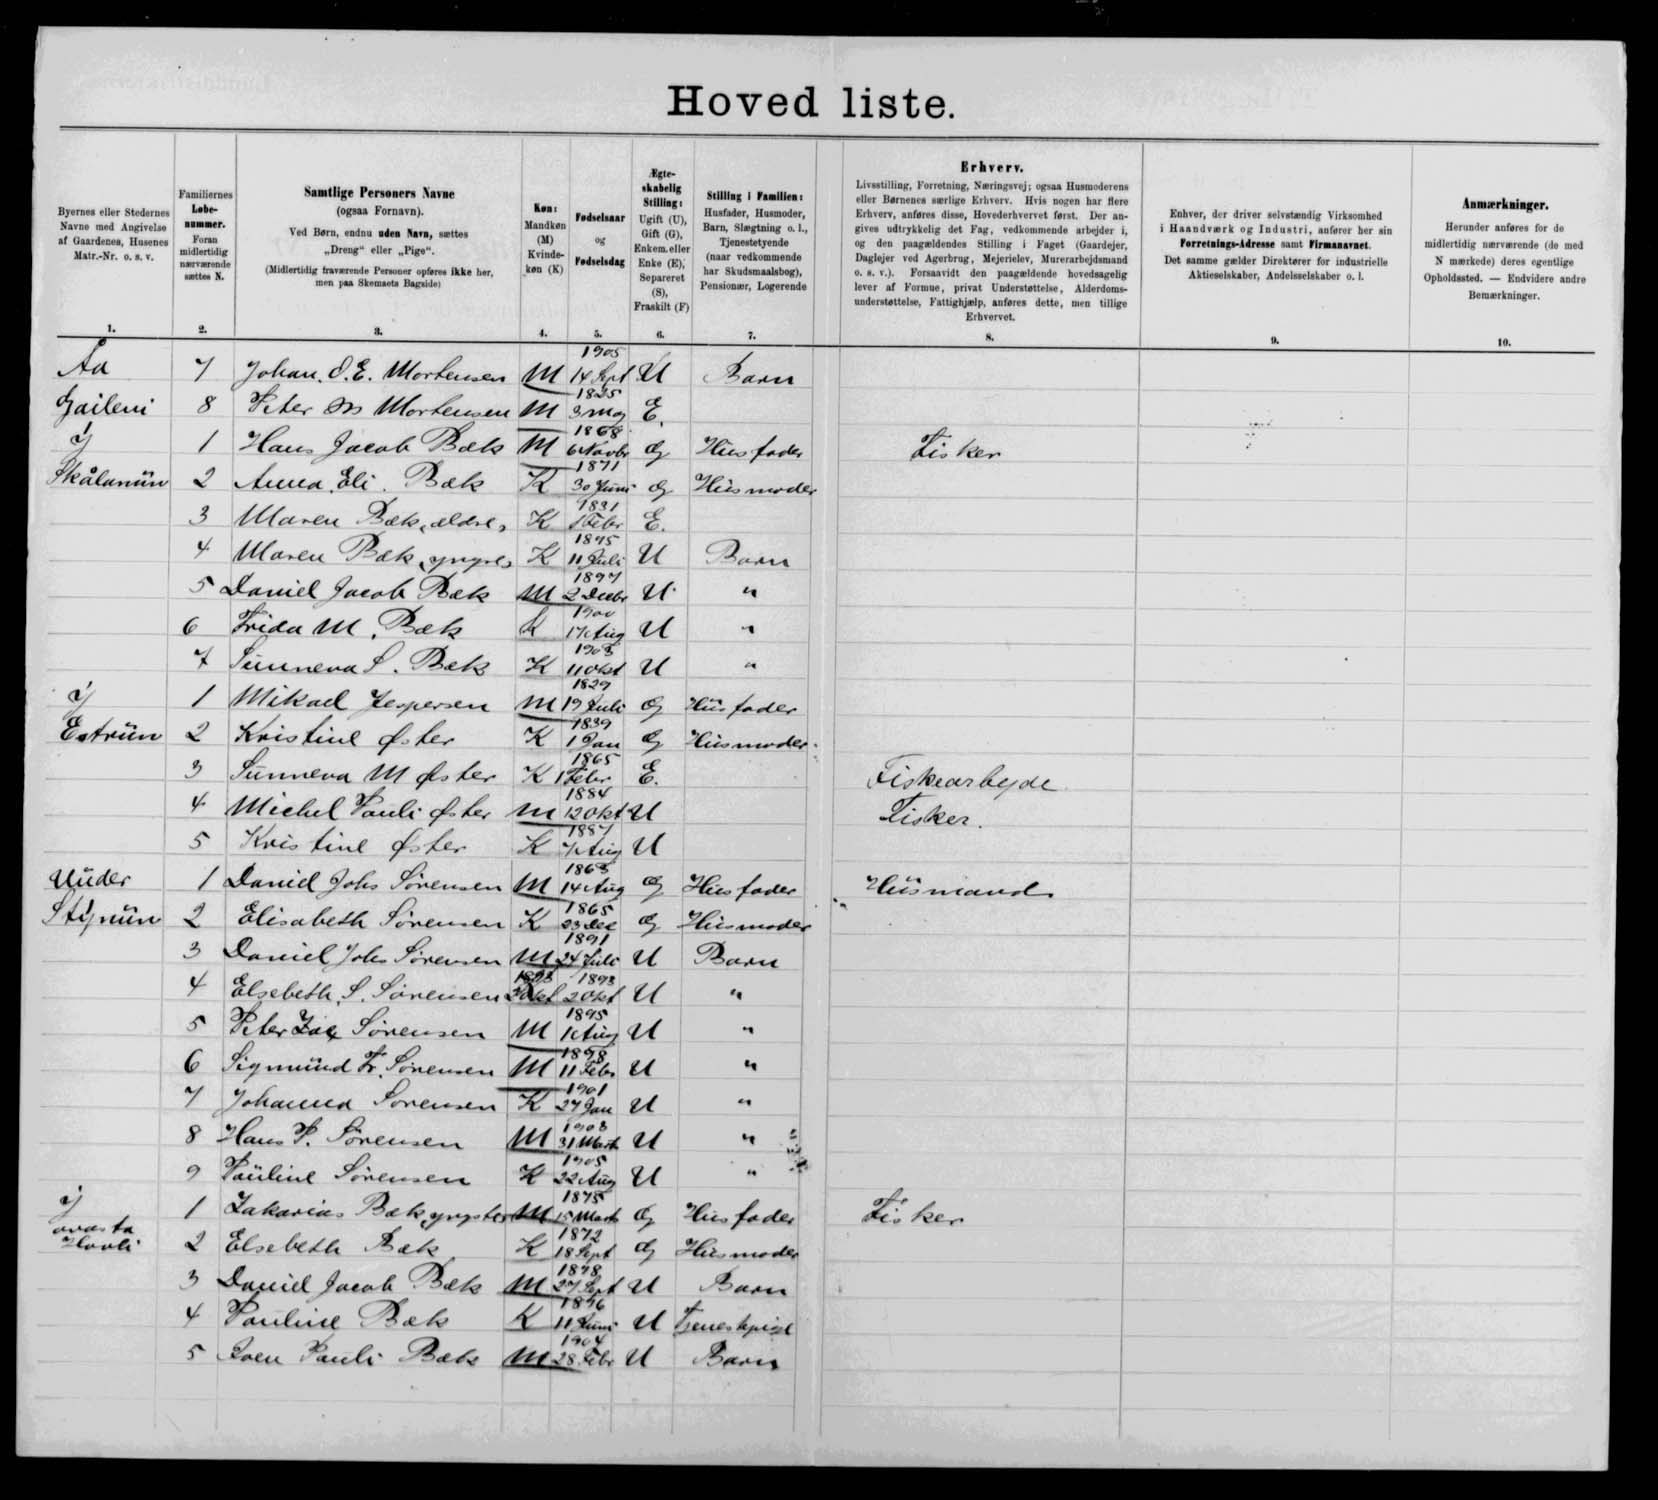 Hoved liste.
Byernes eller Stedernes Navne med Angivelse af Gaardenes, Husenes Matr.-Nr. o. s. v.
Familiernes Løbe-nummer. Foran midlertidig nærværende sættes N.
Samtlige Personers Navne
(ogsaa Fornavn).
Ved Børn, endnu uden Navn, sættes
„Dreng“ eller „Pige“.
(Midlertidig fraværende Personer opføres ikke her,
men paa Skemaets Bagside)
Køn: Mandkøn (M) Kvinde-køn (K)
Fødselsaar og Fødselsdag
Ægte-skabelig Stilling: Ugift (U), Gift (G), Enkem. eller Enke (E), Separeret (S), Fraskilt (F)
Stilling i Familien: Husfader, Husmoder, Barn, Slægtning o. l., Tjenestetyende (naar vedkommende har Skudsmaalsbog), Pensionær, Logerende
Erhverv.
Livsstilling, Forretning, Næringsvej; ogsaa Husmoderens
eller Børnenes særlige Erhverv. Hvis nogen har flere
Erhverv, anføres disse, Hovederhvervet først. Der an-
gives udtrykkelig det Fag, vedkommende arbejder i,
og den paagældendes Stilling i Faget (Gaardejer,
Daglejer ved Agerbrug, Mejerielev, Murerarbejdsmand
o. s. v.). Forsaavidt den paagældende hovedsagelig
lever af Formue, privat Understøttelse, Alderdoms-
understøttelse, Fattighjælp, anføres dette, men tillige
Erhvervet.
Enhver, der driver selvstændig Virksomhed
i Haandværk og Industri, anfører her sin
Forretnings-Adresse samt Firmanavnet.
Det samme gælder Direktører for industrielle
Aktieselskaber, Andelsselskaber o. l.
Anmærkninger.
Herunder anføres for de
midlertidig nærværende (de med
N mærkede) deres egentlige
Opholdssted. — Endvidere andre
Bemærkninger.
1. 2. 3. 4. 5. 6. 7. 8. 9. 10.
Aa 7 Johan. O. E. Mortensen M 1905 14 Sept U Barn
8 Peter M Mortensen M 1825 3 Maj E.
Í 1 Hans Jacob Bæk M 1868 6 Novbr G Husfader Fisker
Skålanún 2 Anna Eli. Bæk K 1871 30 Juni G Husmoder
3 Maren Bæk, ældre, K 1831 1 Febr E.
4 Maren Bæk, yngre, K 1895 11 Juli U Barn
5 Daniel Jacob Bæk M 1897 2 Decbr U "
6 Frida M. Bæk K 1900 17 Aug U "
7 Sunneva S. Bæk K 1903 11 Okt U "
Í 1 Mikael Jespersen M 1829 19 Juli G Husfader
2 Kristine Øster K 1839 1 Jan G Husmoder
3 Sunneva M Øster K 1865 1 Febr E. Fiskearbejde
4 Michel Pauli Øster M 1884 12 Okt U Fisker.
5 Kristine Øster K 1887 7 Aug U
Uúder 1 Daniel Johs Sørensen M 1863 14 Aug G Husfader Húsmand
2 Elisabeth Sørensen K 1865 23 Dec G Husmoder
3 Daniel Johs Sørensen M 1891 24 Juli U Barn
4 Elsebeth. S. Sørensen 1893 2 Okt U "
5 Peter Sørensen M 1895 1 Aug U "
6 Sigmund Fr. Sørensen M 1898 11 Febr U "
7 Johanna Sørensen K 1901 27 Jan U "
8 Hans P. Sørensen M 1903 31 Marts U "
9 Pauline Sørensen K 1905 22 Aug U "
Í 1 Zakarias Bæk, yngster M 1875 15 Marts G Husfader Fisker
2 Elsebeth Bæk K 1872 18 Sept G Husmoder
3 Daniel Jacob Bæk M 1898 27 Sept U Barn
4 Pauline Bæk K 11 Juni U Tjenestepige
5 Joen Pauli Bæk M 1904 28 Febr U Barn